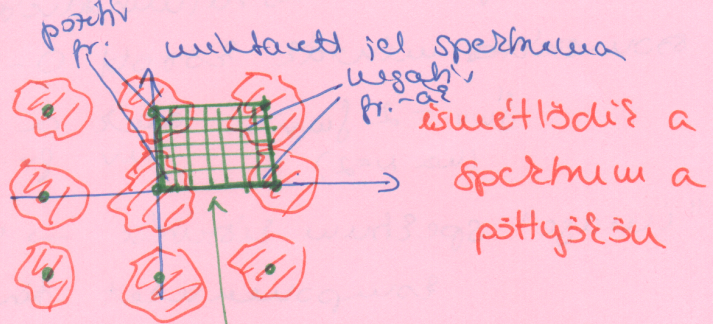 pozitív
fr.
mintavett jel spektruma
negatív
fr.-ák
ismétlődik a
spektrum a
pöttyökön